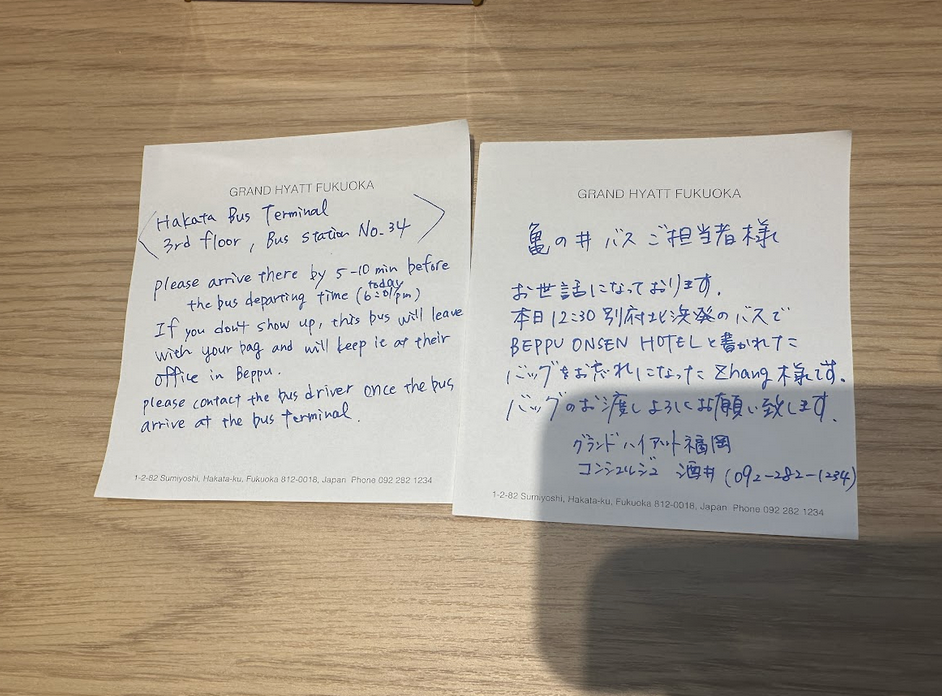 GRAND HYATT FUKUOKA
Hakata Bus Terminal
3rd floor, Bus station No.34
please arrive there by 5-10 min before
the bus departing time (today 6:01pm)
If you don't show up, this bus will leave
with your bag and will keep it at their
office in Beppu.
please contact the bus driver once the bus
arrive at the bus terminal.
1-2-82 Sumiyoshi, Hakata-ku, Fukuoka 812-0018, Japan Phone 092 282 1234
GRAND HYATT FUKUOKA
亀の井バスご担当者様
お世話になっております。
本日12:30別府北浜発のバスで
BEPPU ONSEN HOTELと書かれた
バッグをお忘れになったZhang様です。
バッグのお渡しよろしくお願い致します。
グランドハイアット福岡
コンシェルジュ 酒井 (092-282-1234)
1-2-82 Sumiyoshi, Hakata-ku, Fukuoka 812-0018, Japan Phone 092 282 1234